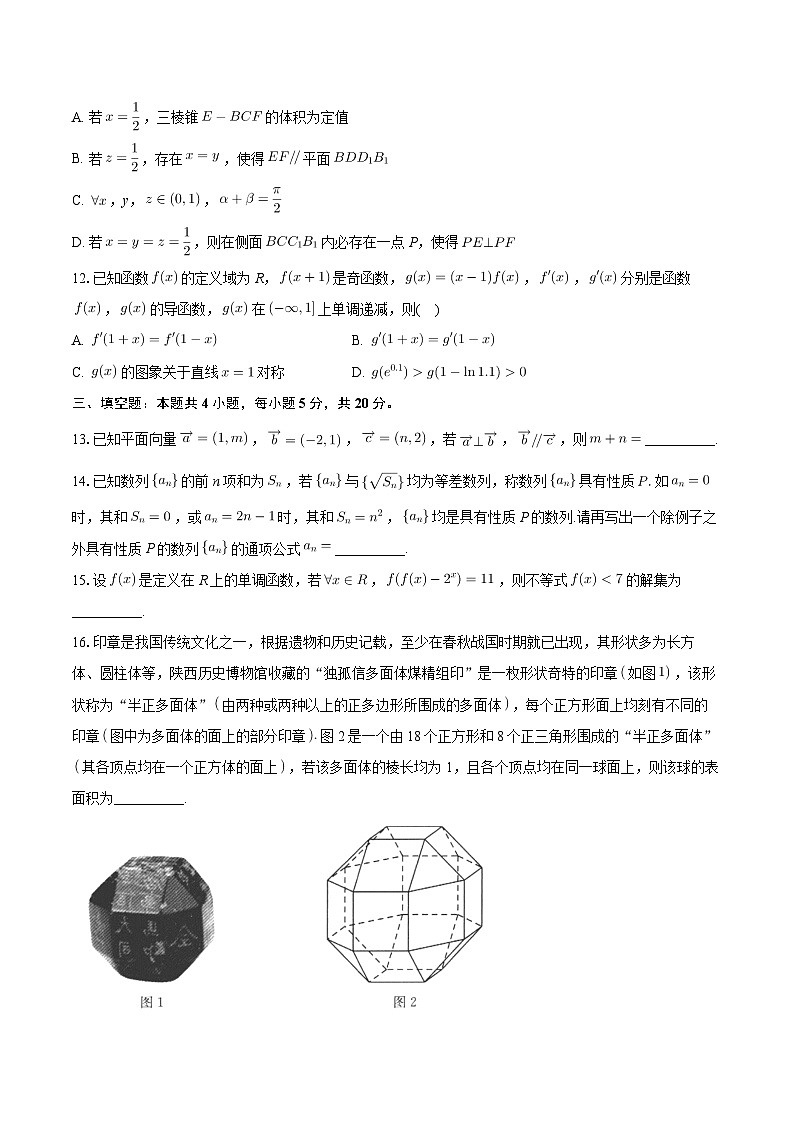 A. 若 x = 1/2 ，三棱锥 E − BCF 的体积为定值
B. 若 z = 1/2 ，存在 x = y ，使得 EF // 平面 BDD₁B₁
C. ∀x ，y， z ∈ (0,1) ， α + β = π/2
D. 若 x = y = z = 1/2 ，则在侧面 BCC₁B₁ 内必存在一点 P，使得 PE⊥PF
12. 已知函数 f(x) 的定义域为 R， f(x+1) 是奇函数， g(x) = (x−1)f(x) ， f′(x) ， g′(x) 分别是函数
f(x) ， g(x) 的导函数， g(x) 在 (−∞,1] 上单调递减，则( )
A. f′(1+x) = f′(1−x) B. g′(1+x) = g′(1−x)
C. g(x) 的图象关于直线 x = 1 对称 D. g(e^{0.1}) > g(1 − ln 1.1) > 0
三、填空题：本题共 4 小题，每小题 5 分，共 20 分。
13. 已知平面向量 a⃗ = (1,m) ， b⃗ = (−2,1) ， c⃗ = (n,2) ，若 a⃗⊥b⃗ ， b⃗//c⃗ ，则 m + n = __________.
14. 已知数列 {aₙ} 的前 n 项和为 Sₙ ，若 {aₙ} 与 {√Sₙ} 均为等差数列，称数列 {aₙ} 具有性质 P. 如 aₙ = 0
时，其和 Sₙ = 0 ，或 aₙ = 2n − 1 时，其和 Sₙ = n² ， {aₙ} 均是具有性质 P 的数列.请再写出一个除例子之
外具有性质 P 的数列 {aₙ} 的通项公式 aₙ = __________.
15. 设 f(x) 是定义在 R 上的单调函数，若 ∀x ∈ R ， f(f(x) − 2ˣ) = 11 ，则不等式 f(x) < 7 的解集为
__________.
16. 印章是我国传统文化之一，根据遗物和历史记载，至少在春秋战国时期就已出现，其形状多为长方
体、圆柱体等，陕西历史博物馆收藏的“独孤信多面体煤精组印”是一枚形状奇特的印章(如图1)，该形
状称为“半正多面体”(由两种或两种以上的正多边形所围成的多面体)，每个正方形面上均刻有不同的
印章(图中为多面体的面上的部分印章).图 2 是一个由 18 个正方形和 8 个正三角形围成的“半正多面体”
(其各顶点均在一个正方体的面上)，若该多面体的棱长均为 1，且各个顶点均在同一球面上，则该球的表
面积为__________.
图 1 图 2